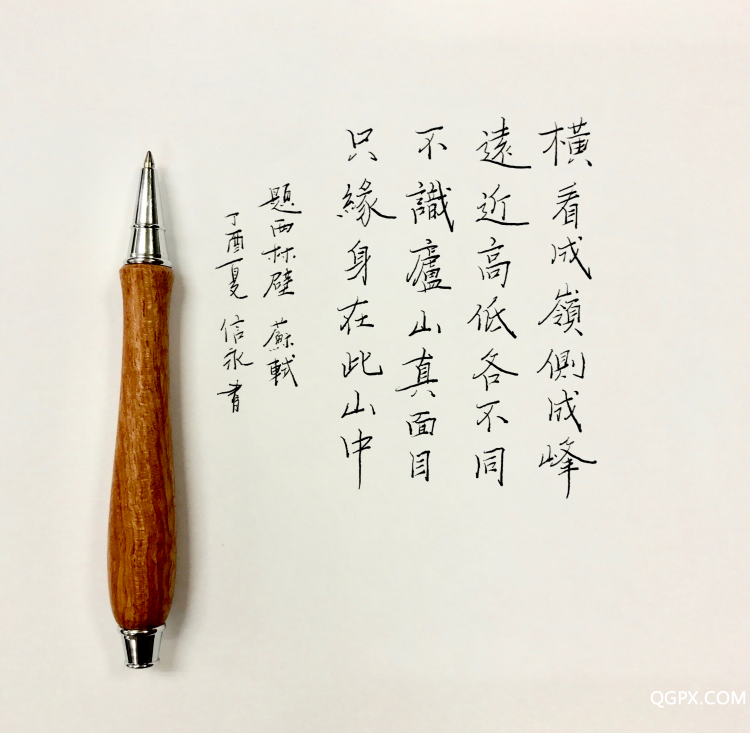 橫看成嶺側成峰
遠近高低各不同
不識廬山真面目
只緣身在此山中
題西林壁 蘇軾
丁酉夏 信永書
QGPX.COM